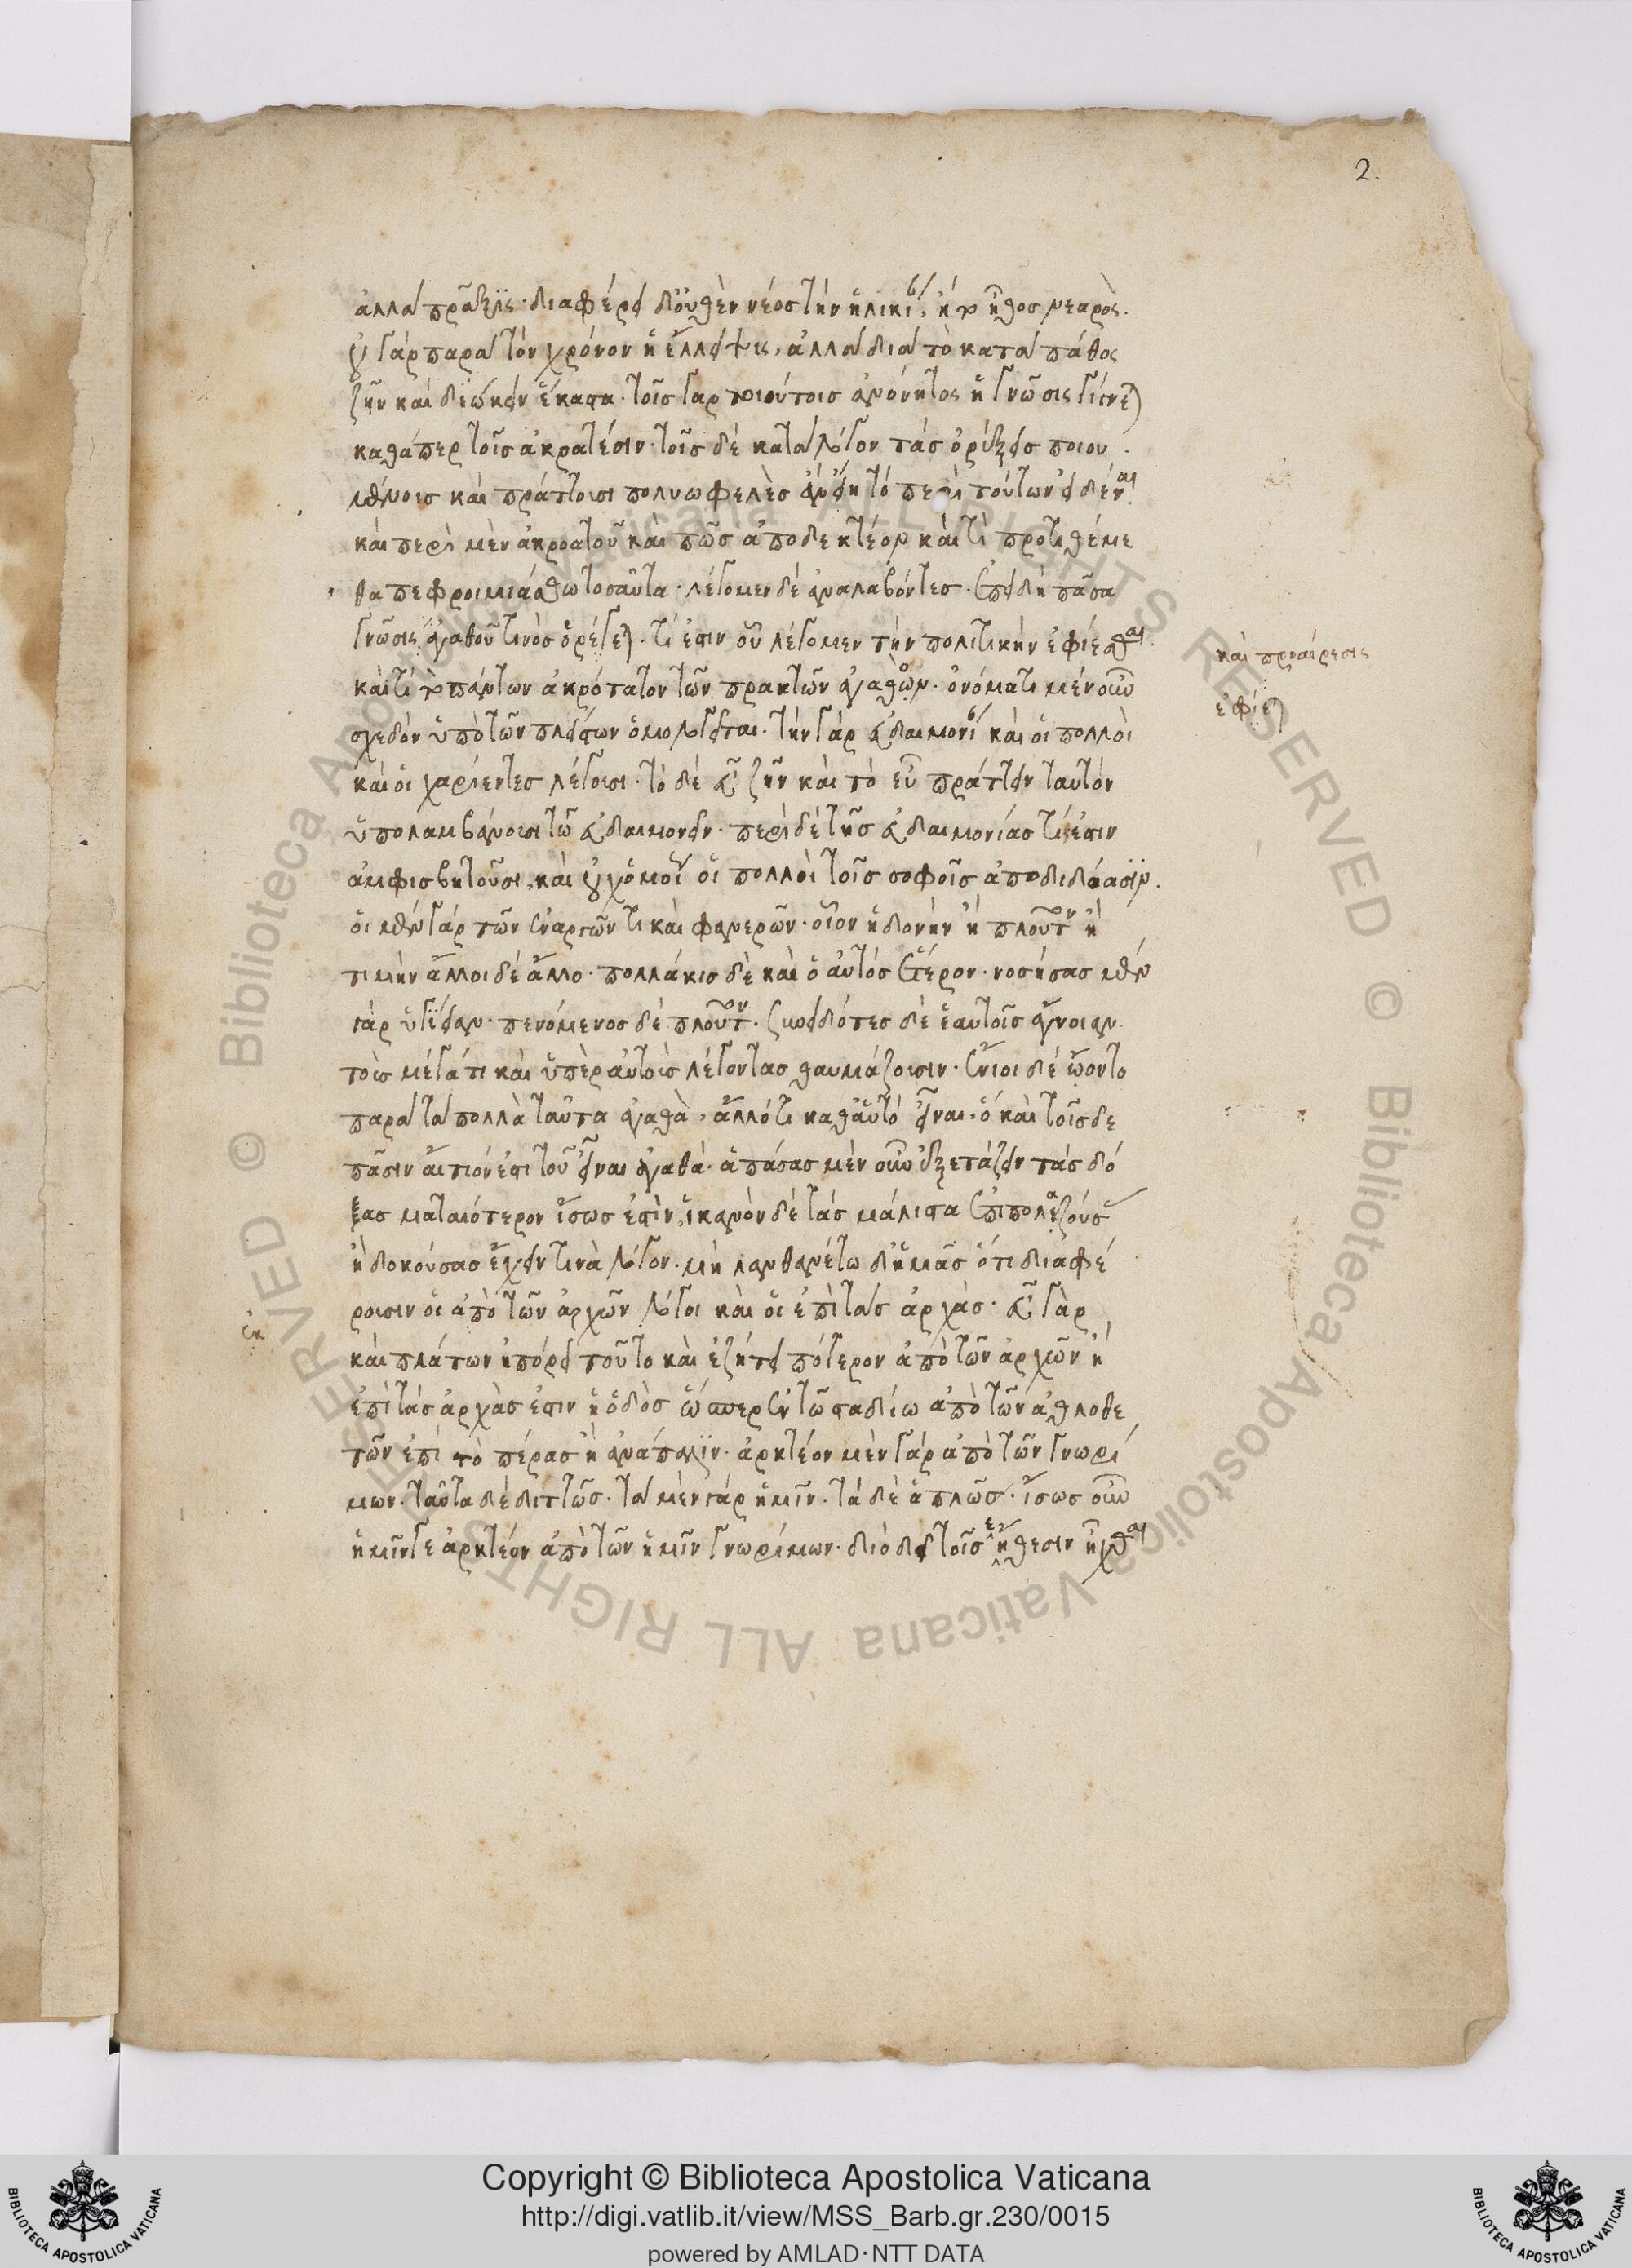 2.
ἀλλὰ πρᾶξις· διαφέρει δ' οὐθὲν νέος τὴν ἡλικίαν, ἢ τὸ ἦθος νεαρὸς.
οὐ γὰρ παρὰ τὸν χρόνον ἡ ἔλλειψις, ἀλλὰ διὰ τὸ κατὰ πάθος
ζῆν καὶ διώκειν ἕκαστα· τοῖς γὰρ τοιούτοις ἀνόνητος ἡ γνῶσις γίνεται
καθάπερ τοῖς ἀκρατέσιν· τοῖς δὲ κατὰ λόγον τὰς ὀρέξεις ποιου
μένοις καὶ πράττουσι πολυωφελὲς ἂν εἴη τὸ περὶ τούτων εἰδέναι.
καὶ περὶ μὲν ἀκροατοῦ καὶ πῶς ἀποδεκτέον καὶ τί προτιθέμε
θα πεφροιμιάσθω τοσαῦτα· λέγομεν δὲ ἀναλαβόντες· ἐπειδὴ πᾶσα
γνῶσις ἀγαθοῦ τινὸς ὀρέγεται. τί ἐστιν οὗ λέγομεν τὴν πολιτικὴν ἐφίεσθαι.
καὶ προαίρεσις
καὶ τί τὸ πάντων ἀκρότατον τῶν πρακτῶν ἀγαθῶν· ὀνόματι μὲν οὖν
ἐφίεται
σχεδὸν ὑπὸ τῶν πλείστων ὁμολογεῖται. τὴν γὰρ εὐδαιμονίαν καὶ οἱ πολλοὶ
καὶ οἱ χαρίεντες λέγουσι· τὸ δὲ εὖ ζῆν καὶ τὸ εὖ πράττειν ταυτὸν
ὑπολαμβάνουσι τῶ εὐδαιμονεῖν· περὶ δὲ τῆς εὐδαιμονίας τί ἐστιν
ἀμφισβητοῦσι, καὶ οὐχ ὁμοίως οἱ πολλοὶ τοῖς σοφοῖς ἀποδιδόασιν.
οἱ μὲν γὰρ τῶν ἐναργῶν τι καὶ φανερῶν· οἷον ἡδονὴν ἢ πλοῦτον ἢ
τιμὴν ἄλλοι δὲ ἄλλο· πολλάκις δὲ καὶ ὁ αὐτὸς ἕτερον· νοσήσας μὲν
γὰρ ὑγίειαν· πενόμενος δὲ πλοῦτον. συνειδότες δὲ ἑαυτοῖς ἄγνοιαν
τοὺς μέγα τι καὶ ὑπὲρ αὐτοὺς λέγοντας θαυμάζουσιν· ἔνιοι δὲ ᾤοντο
παρὰ τὰ πολλὰ ταῦτα ἀγαθὰ, ἄλλό τι καθ' αὑτὸ εἶναι, ὃ καὶ τοῖσδε
πᾶσιν αἴτιόν ἐστι τοῦ εἶναι ἀγαθά· ἁπάσας μὲν οὖν ἐξετάζειν τὰς δό
ξας ματαιότερον ἴσως ἐστὶν, ἱκανὸν δὲ τὰς μάλιστα ἐπιπολαζούσας
ἢ δοκούσας ἔχειν τινὰ λόγον. μὴ λανθανέτω δ' ἡμᾶς ὅτι διαφέ
ρουσιν οἱ ἀπὸ τῶν ἀρχῶν λόγοι καὶ οἱ ἐπὶ τὰς ἀρχὰς· εὖ γὰρ
ἐκ
καὶ πλάτων ἠπόρει τοῦτο καὶ ἐζήτει πότερον ἀπὸ τῶν ἀρχῶν ἢ
ἐπὶ τὰς ἀρχὰς ἐστιν ἡ ὁδὸς ὥσπερ ἐν τῶ σταδίω ἀπὸ τῶν ἀθλοθε
τῶν ἐπὶ τὸ πέρας ἢ ἀνάπαλιν· ἀρκτέον μὲν γὰρ ἀπὸ τῶν γνωρί
μων. ταῦτα δὲ διττῶς. τὰ μὲν γὰρ ἡμῖν. τὰ δὲ ἁπλῶς· ἴσως οὖν
ἡμῖν γε ἀρκτέον ἀπὸ τῶν ἡμῖν γνωρίμων· διὸ δεῖ τοῖς ἔθεσιν ἦχθαι
Copyright © Biblioteca Apostolica Vaticana
http://digi.vatlib.it/view/MSS_Barb.gr.230/0015
powered by AMLAD·NTT DATA
BIBLIOTECA APOSTOLICA VATICANA
BIBLIOTECA APOSTOLICA VATICANA
© Biblioteca Apostolica Vaticana ALL RIGHTS RESERVED
© Biblioteca Apostolica Vaticana ALL RIGHTS RESERVED